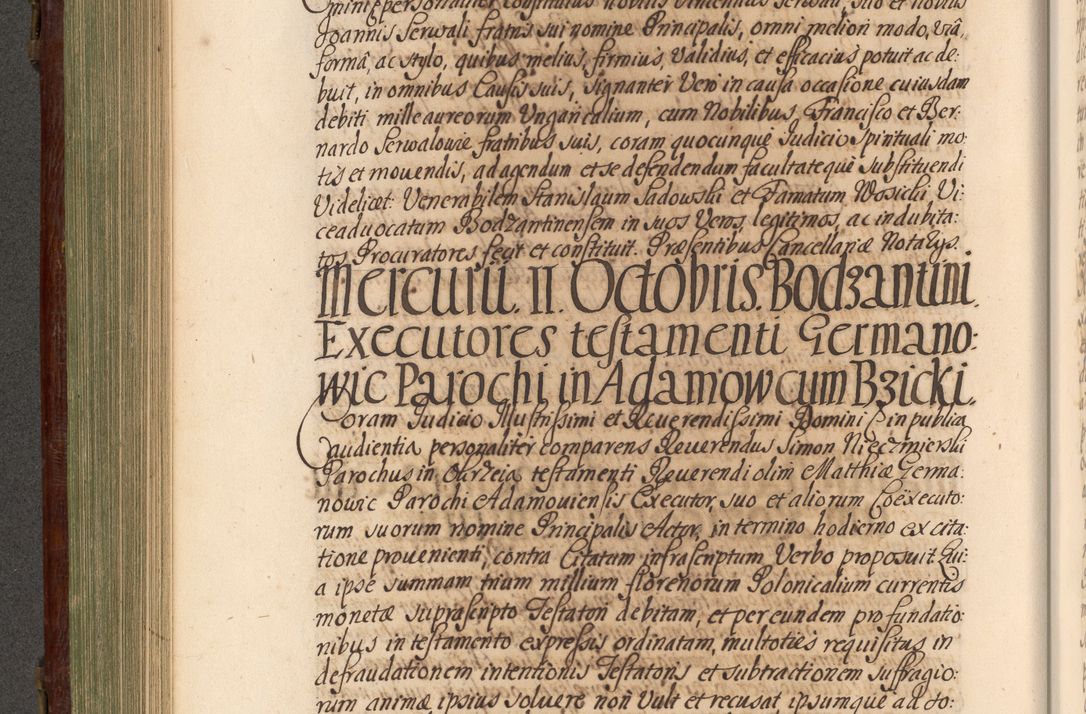 mini personaliter constitutus nobilis Vincentius Serwali, suo et nobilis
Joannis Serwali fratris sui nomine Principalis, omni meliori modo, viâ,
formâ, ac stylo, quibus melius, firmius, validius, et efficacius potuit ac de:
buit, in omnibus Causis suis, signanter Vero in causa occasione cuiusdam
debiti mille aureorum Ungaricalium, cum Nobilibus Francisco et Ber:
nardo Serwalowie fratribus suis, coram quocunque Judicio Spirituali mo:
tis et mouendis, ad agendum et se defendendum facultateque substituendi
Videlicet: Venerabilem Stanislaum Sadowski et Famatum Wosicki Vi:
ceaduocatum Bodzantinensem in suos Veros, legitimos, ac indubita:
tos Procuratores fecit et constituit. Præsentibus Cancellariæ Notarys.
Mercurii. II. Octobris. Bodzantini.
Executores testamenti Germano:
wic Parochi in Adamow cum Bzicki.
Coram Judicio Illustrissimi et Reuerendissimi Domini in publica
audientia personaliter comparens Reuerendus Simon Niezmierski
Parochus in testamenti Reuerendi olim Matthiæ Germa:
nowic Parochi Adamouiensis Executor, suo et aliorum Coexecuto:
rum suorum nomine Principalis Actor, in termino hodierno ex cita:
tione prouenienti, contra Citatum infrascriptum Verbo proposuit. Qui:
a ipse summam trium millium florenorum Polonicalium currentis
monetæ suprascripto Testatori debitam, et per eundem pro fundatio:
nibus in testamento expressis ordinatam, multoties requisitus in
defraudationem intentionis Testatoris et subtractionem suffragio:
rum animæ ipsius soluere non Vult et recusat ipsumque ad so: